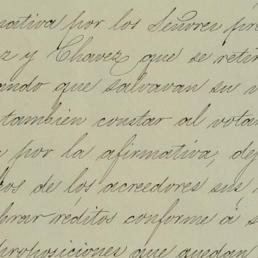 mativa por los Señores pr
z y Chavez que se retir
ando que salvavan su v
tambien constar al vota
por la afirmativa, dej
os de los acreedores sus
brar réditos conforme á s
proposiciones que quedan